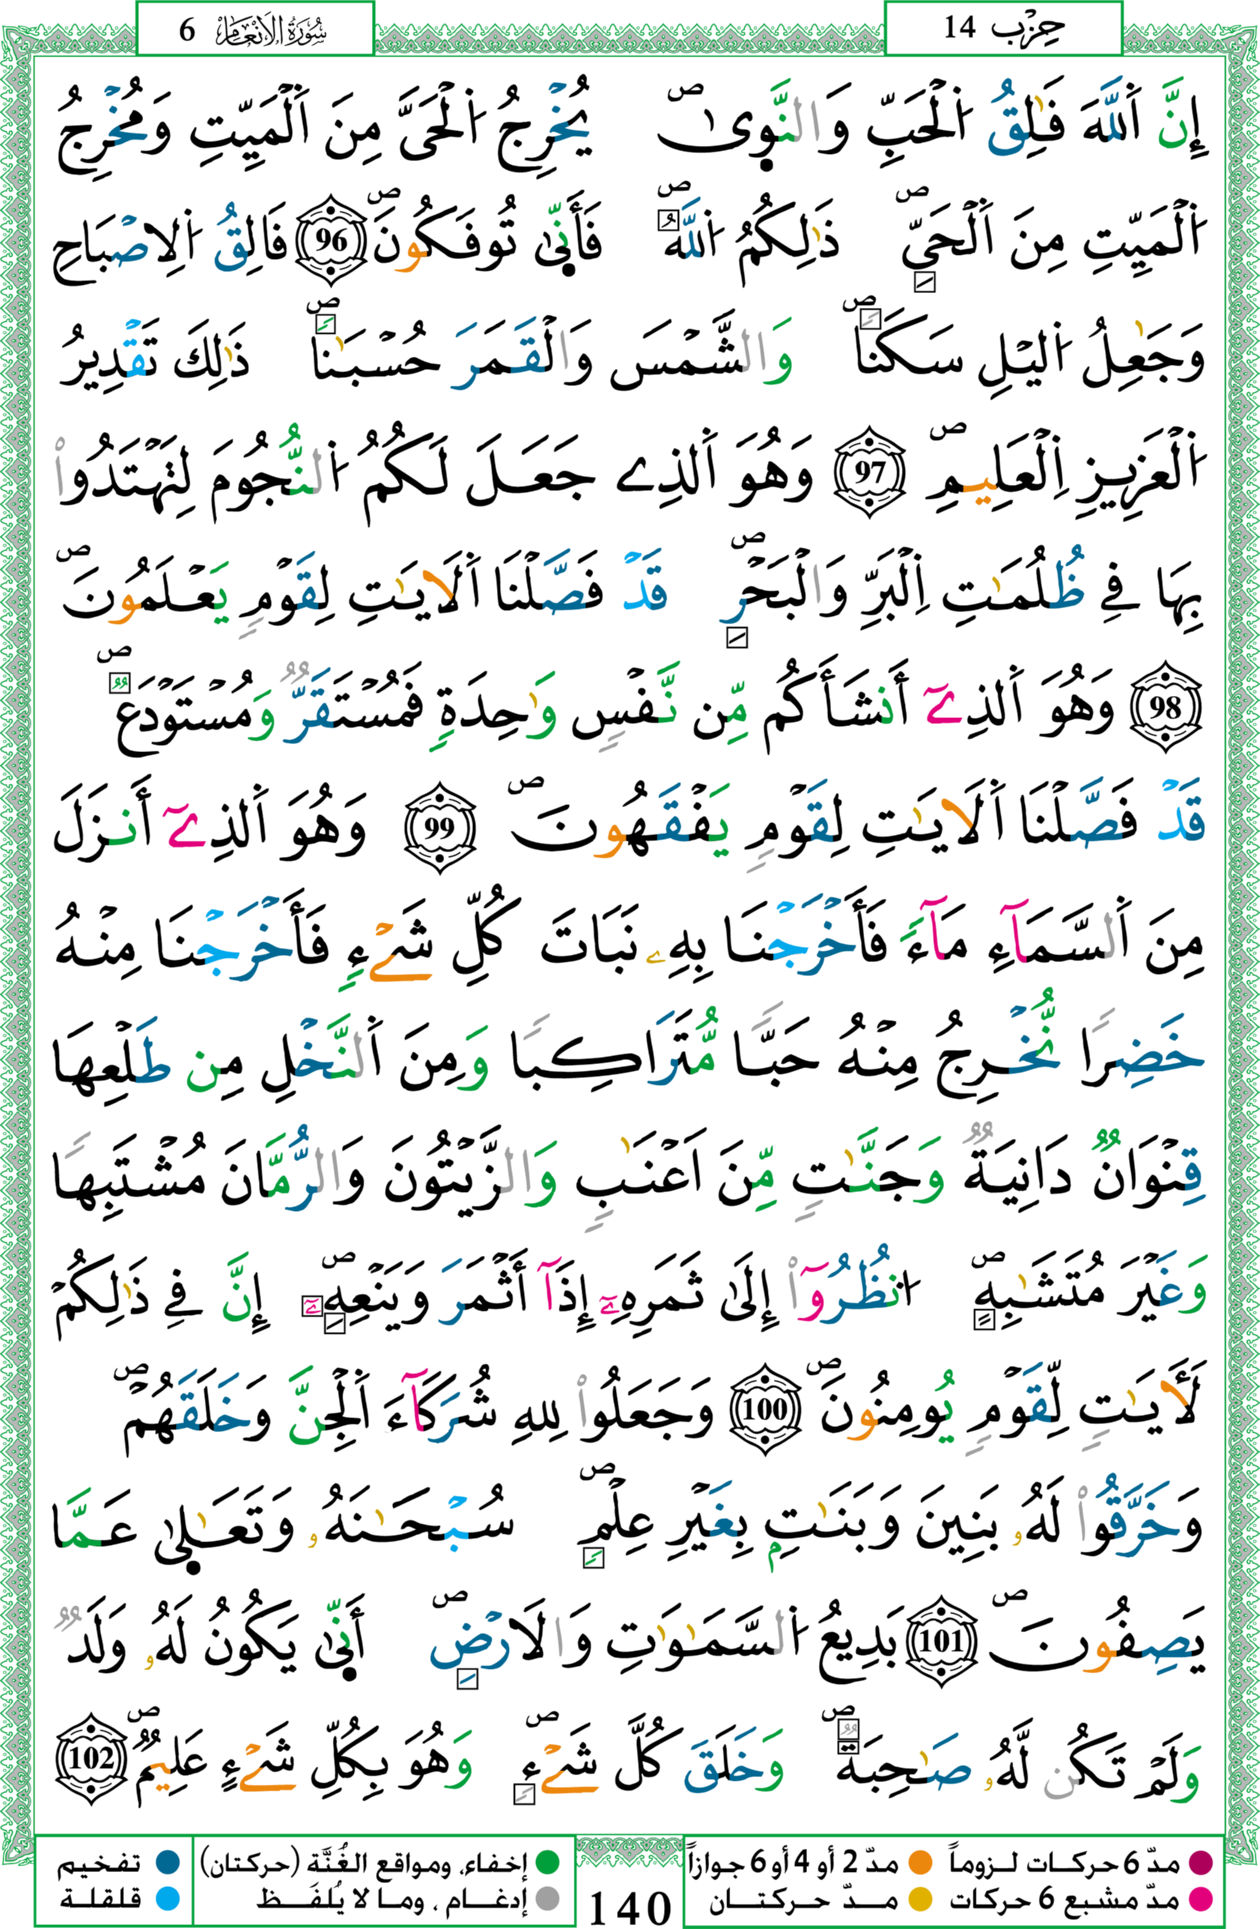 سُورَةُ الأَنْعَامِ 6
حِزْب 14
إِنَّ اَ۬للَّهَ فَٰلِقُ اُ۬لْحَبِّ وَالنَّوٜىٰۖ يُخْرِجُ اُ۬لْحَيَّ مِنَ اَ۬لْمَيِّتِ وَمُخْرِجُ
اُ۬لْمَيِّتِ مِنَ اَ۬لْحَيِّۖ ذَٰلِكُمُ اُ۬للَّهُۖ فَأَنّ۪ىٰ تُوفَكُونَۖ 96 فَالِقُ اُ۬لِاصْبَاحِ
وَجَٰعِلُ اُ۬ليْلِ سَكَناٗۖ وَالشَّمْسَ وَالْقَمَرَ حُسْبَٰناٗۖ ذَٰلِكَ تَقْدِيرُ
اُ۬لْعَزِيزِ اِ۬لْعَلِيمِۖ 97 وَهُوَ اَ۬لذِے جَعَلَ لَكُمُ اُ۬لنُّجُومَ لِتَهْتَدُواْ
بِهَا فِے ظُلُمَٰتِ اِ۬لْبَرِّ وَالْبَحْرِۖ قَدْ فَصَّلْنَا اَ۬لَايَٰتِ لِقَوْمٖ يَعْلَمُونَۖ
98 وَهُوَ اَ۬لذِےٓ أَنشَأَكُم مِّن نَّفْسٖ وَٰحِدَةٖ فَمُسْتَقَرّٞ وَمُسْتَوْدَعٞۖ
قَدْ فَصَّلْنَا اَ۬لَايَٰتِ لِقَوْمٖ يَفْقَهُونَۖ 99 وَهُوَ اَ۬لذِےٓ أَنزَلَ
مِنَ اَ۬لسَّمَآءِ مَآءٗ فَأَخْرَجْنَا بِهِۦ نَبَاتَ كُلِّ شَےْءٖ فَأَخْرَجْنَا مِنْهُ
خَضِراٗ نُّخْرِجُ مِنْهُ حَبّاٗ مُّتَرَاكِباٗ وَمِنَ اَ۬لنَّخْلِ مِن طَلْعِهَا
قِنْوَانٞ دَانِيَةٞ وَجَنَّٰتٖ مِّنَ اَعْنَٰبٖ وَالزَّيْتُونَ وَالرُّمَّانَ مُشْتَبِهاٗ
وَغَيْرَ مُتَشَٰبِهٍۖ اُ۟نظُرُوٓاْ إِلَىٰ ثَمَرِهِۦٓ إِذَآ أَثْمَرَ وَيَنْعِهِۦٓۖ إِنَّ فِے ذَٰلِكُمْ
لَأٓيَٰتٖ لِّقَوْمٖ يُومِنُونَۖ 100 وَجَعَلُواْ لِلهِ شُرَكَآءَ اَ۬لْجِنَّ وَخَلَقَهُمْۖ
وَخَرَّقُواْ لَهُۥ بَنِينَ وَبَنَٰتِۢ بِغَيْرِ عِلْمٖۖ سُبْحَٰنَهُۥ وَتَعَٰل۪ىٰ عَمَّا
يَصِفُونَۖ 101 بَدِيعُ اُ۬لسَّمَٰوَٰتِ وَالَارْضِۖ أَنّ۪ىٰ يَكُونُ لَهُۥ وَلَدٞ
وَلَمْ تَكُن لَّهُۥ صَٰحِبَةٞۖ وَخَلَقَ كُلَّ شَےْءٖۖ وَهُوَ بِكُلِّ شَےْءٍ عَلِيمٞۖ 102
مدّ 6 حركات لـزوماً مدّ 2 أو 4 أو 6 جوازاً
مدّ مشبع 6 حركات مـدّ حركتـان
140
إخفاء، ومواقع الغُنَّة (حركتان) تفخيم
إدغـام ، ومـا لا يُلفَـظ قلقلة